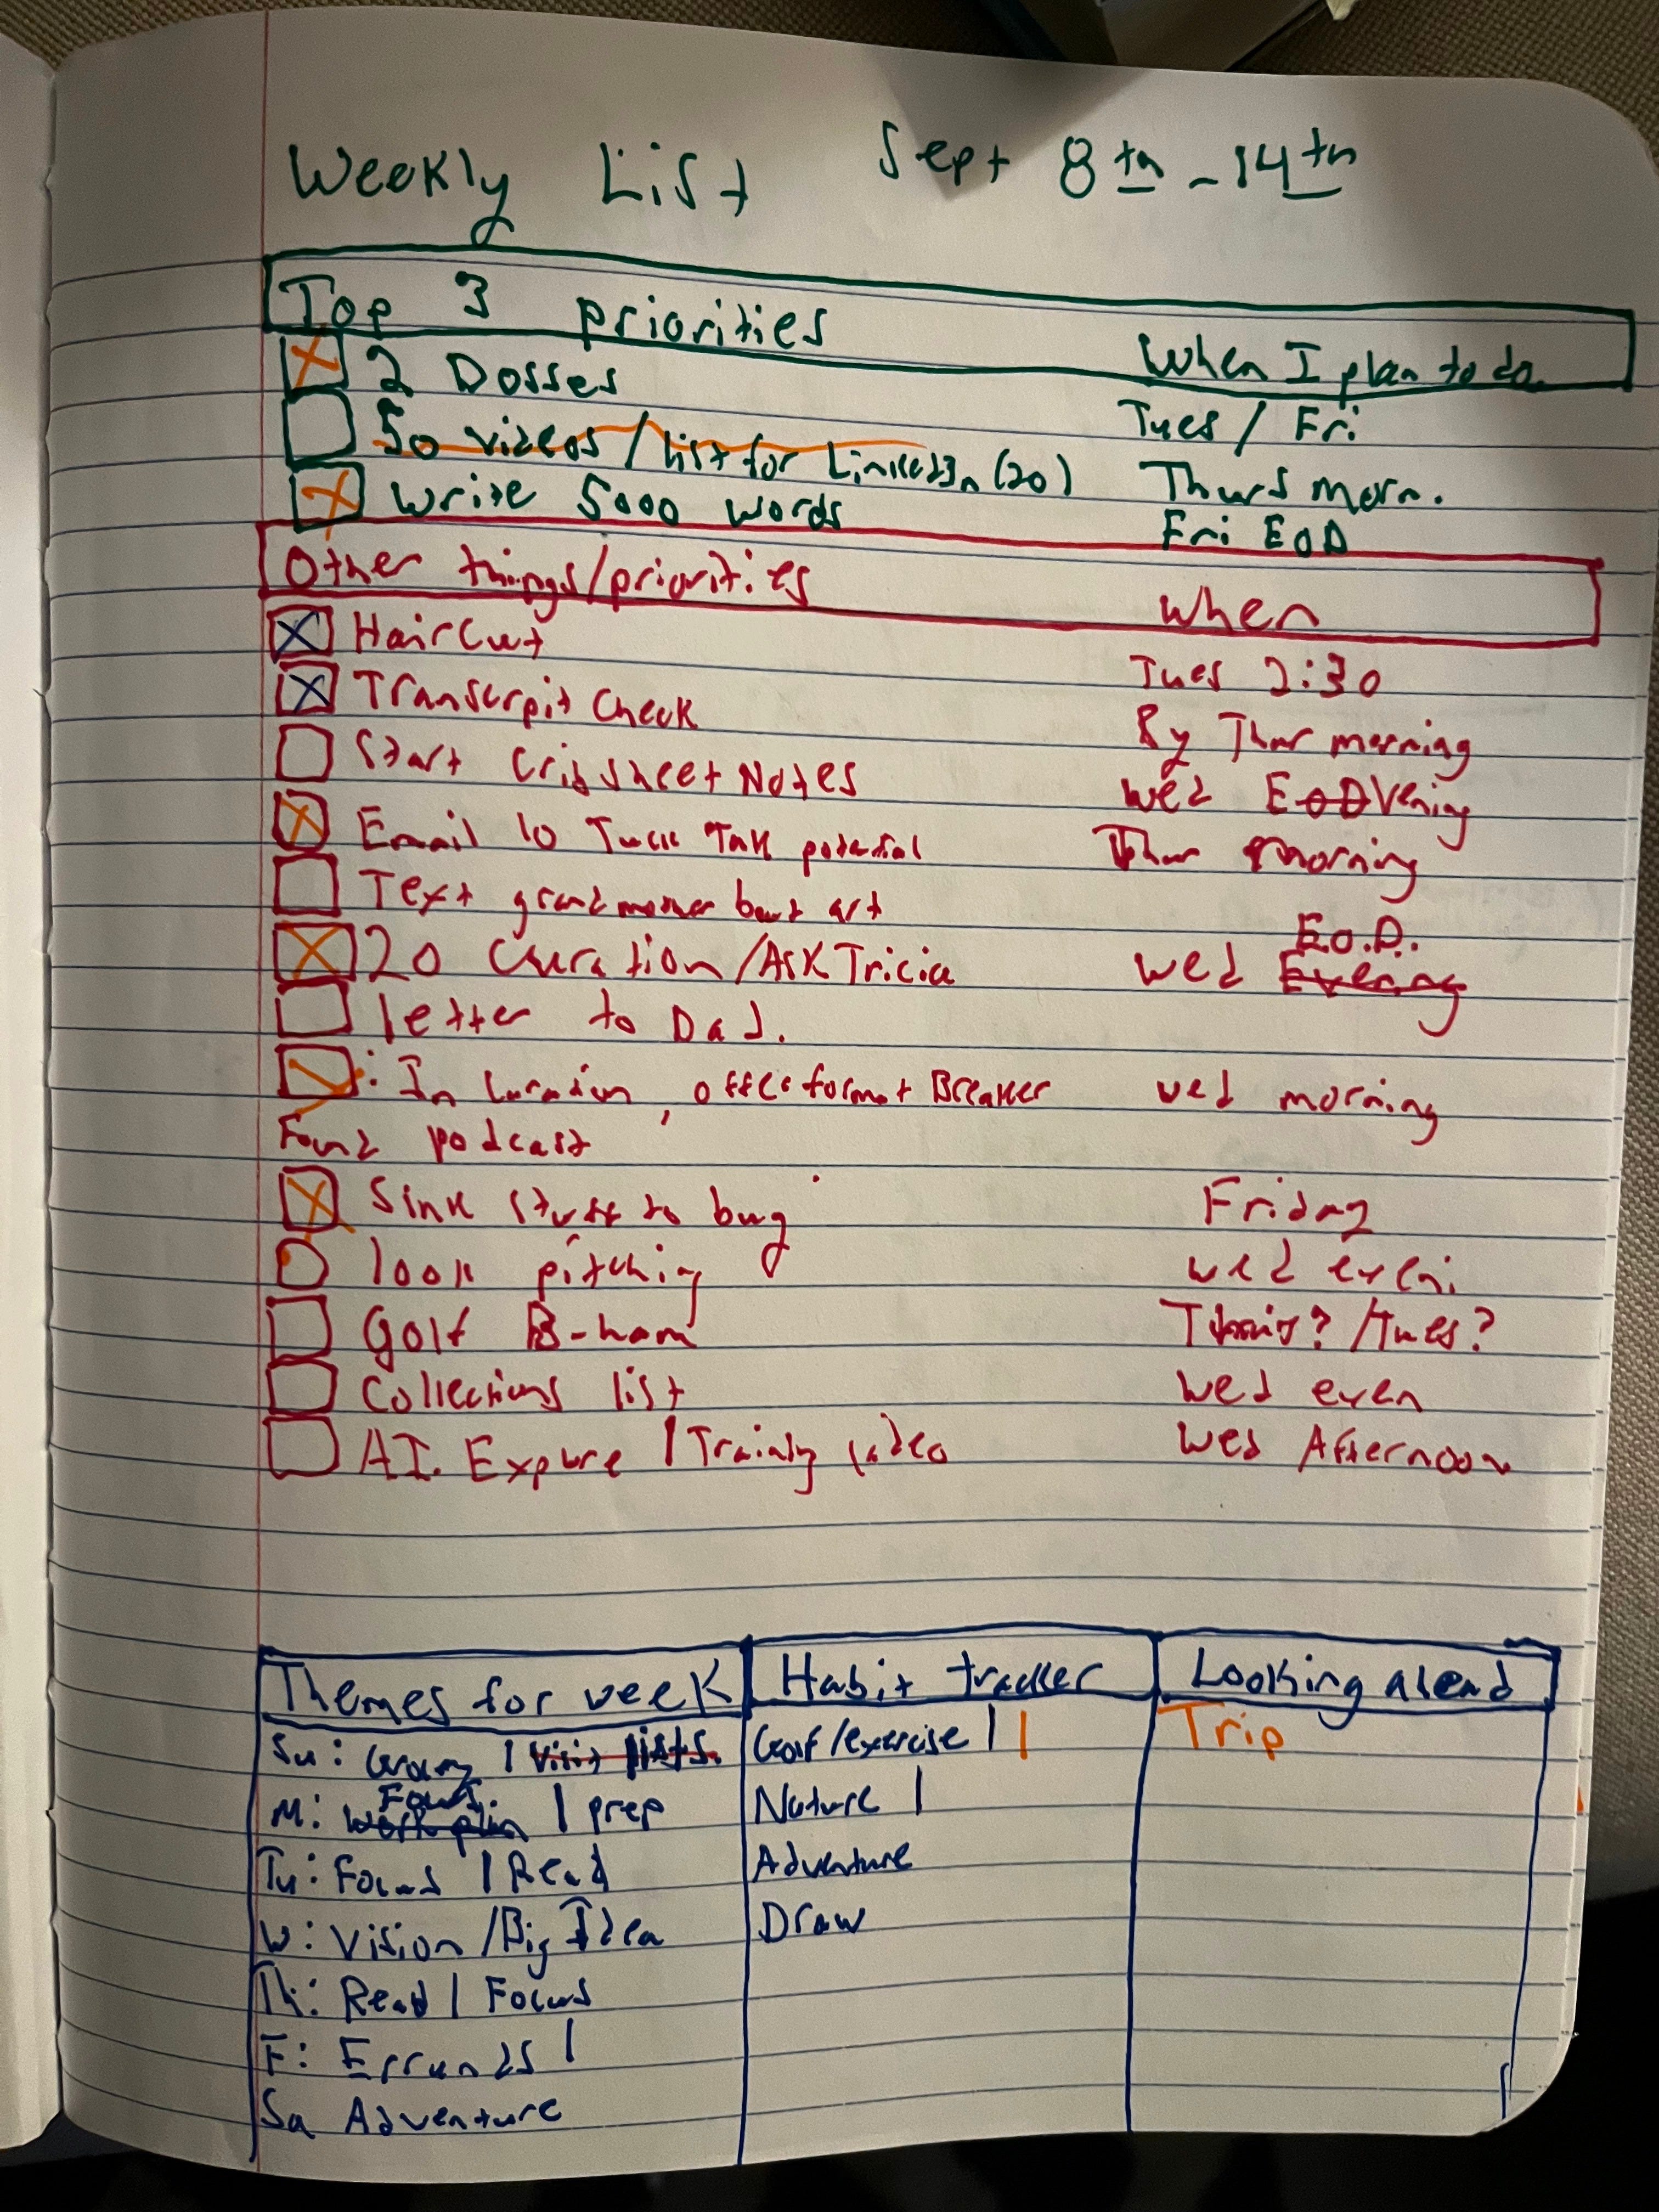 Weekly List Sept 8th - 14th
Top 3 priorities When I plan to do
2 Dosses Tues / Fri
50 videos / list for LinkedIn (20) Thurs morn.
Write 5000 words Fri EOD
Other things/priorities When
Haircut Tues 2:30
Transcrpit Check By Thur morning
Start Cribsheet Notes Wed EODVening
Email 10 Tuck Talk potential Thur morning
Text grandmother bout art
20 Curation / Ask Tricia Wed Evening E.O.D.
letter to Dad.
: In , office format Breaker wed morning
Found podcast
Sink stuff to buy Friday
look pitching wed eveni.
Golf B-ham /tues?
Collections list Wed even
A.I. Explore | Training video Wed Afternoon
Themes for week Habit tracker Looking ahead
Su: | Visit lists. Golf/exercise | | Trip
M: Focus Work plan | prep Nature |
Tu: Focus | Read Adventure
W: Vision / Big Idea Draw
Th: Read | Focus
F: Errands |
Sa Adventure